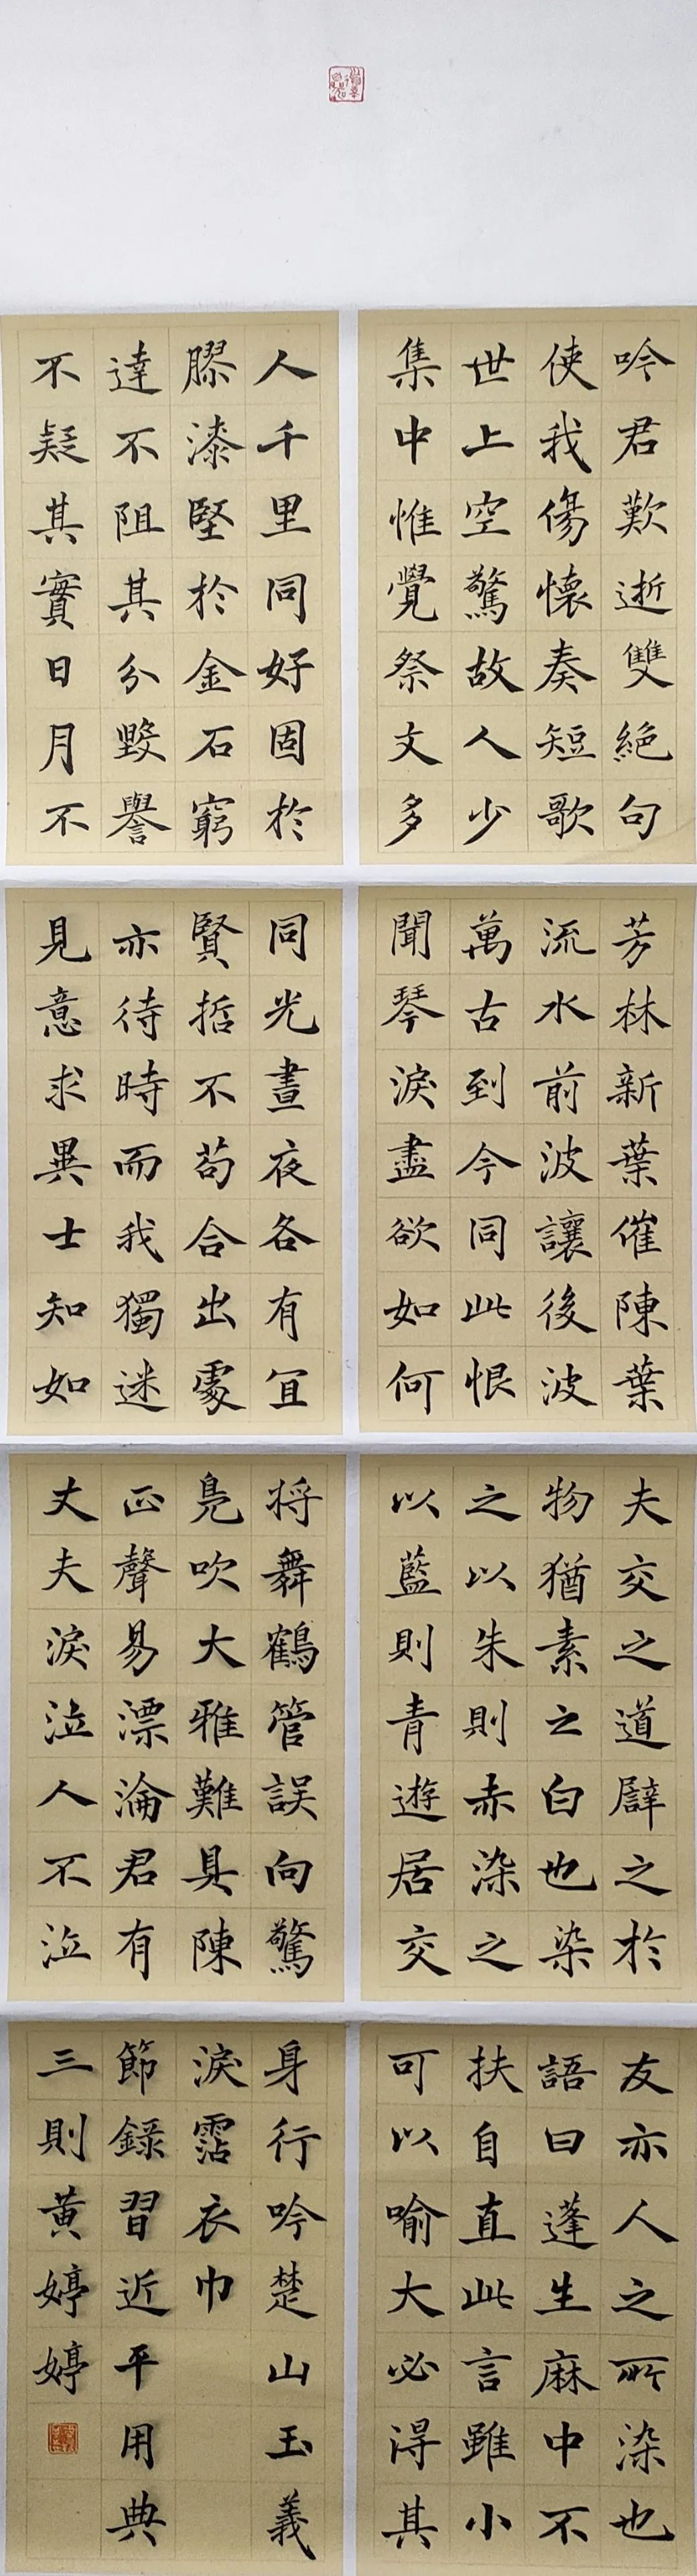 吟君歎逝雙絕句
使我傷懷奏短歌
世上空驚故人少
集中惟覺祭文多
芳林新葉催陳葉
流水前波讓後波
萬古到今同此恨
聞琴淚盡欲如何
夫交之道譬之於
物猶素之白也染
之以朱則赤染之
以藍則青遊居交
友亦人之所染也
語曰蓬生麻中不
扶自直此言雖小
可以喻大必得其
人千里同好固於
膠漆堅於金石窮
達不阻其分毀譽
不疑其實日月不
同光晝夜各有宜
賢哲不苟合出處
亦待時而我獨迷
見意求異士知如
将舞鶴管誤向驚
鳧吹大雅難具陳
正聲易漂淪君有
丈夫淚泣人不泣
身行吟楚山玉義
淚霑衣巾
節錄習近平用典
三則黃婷婷